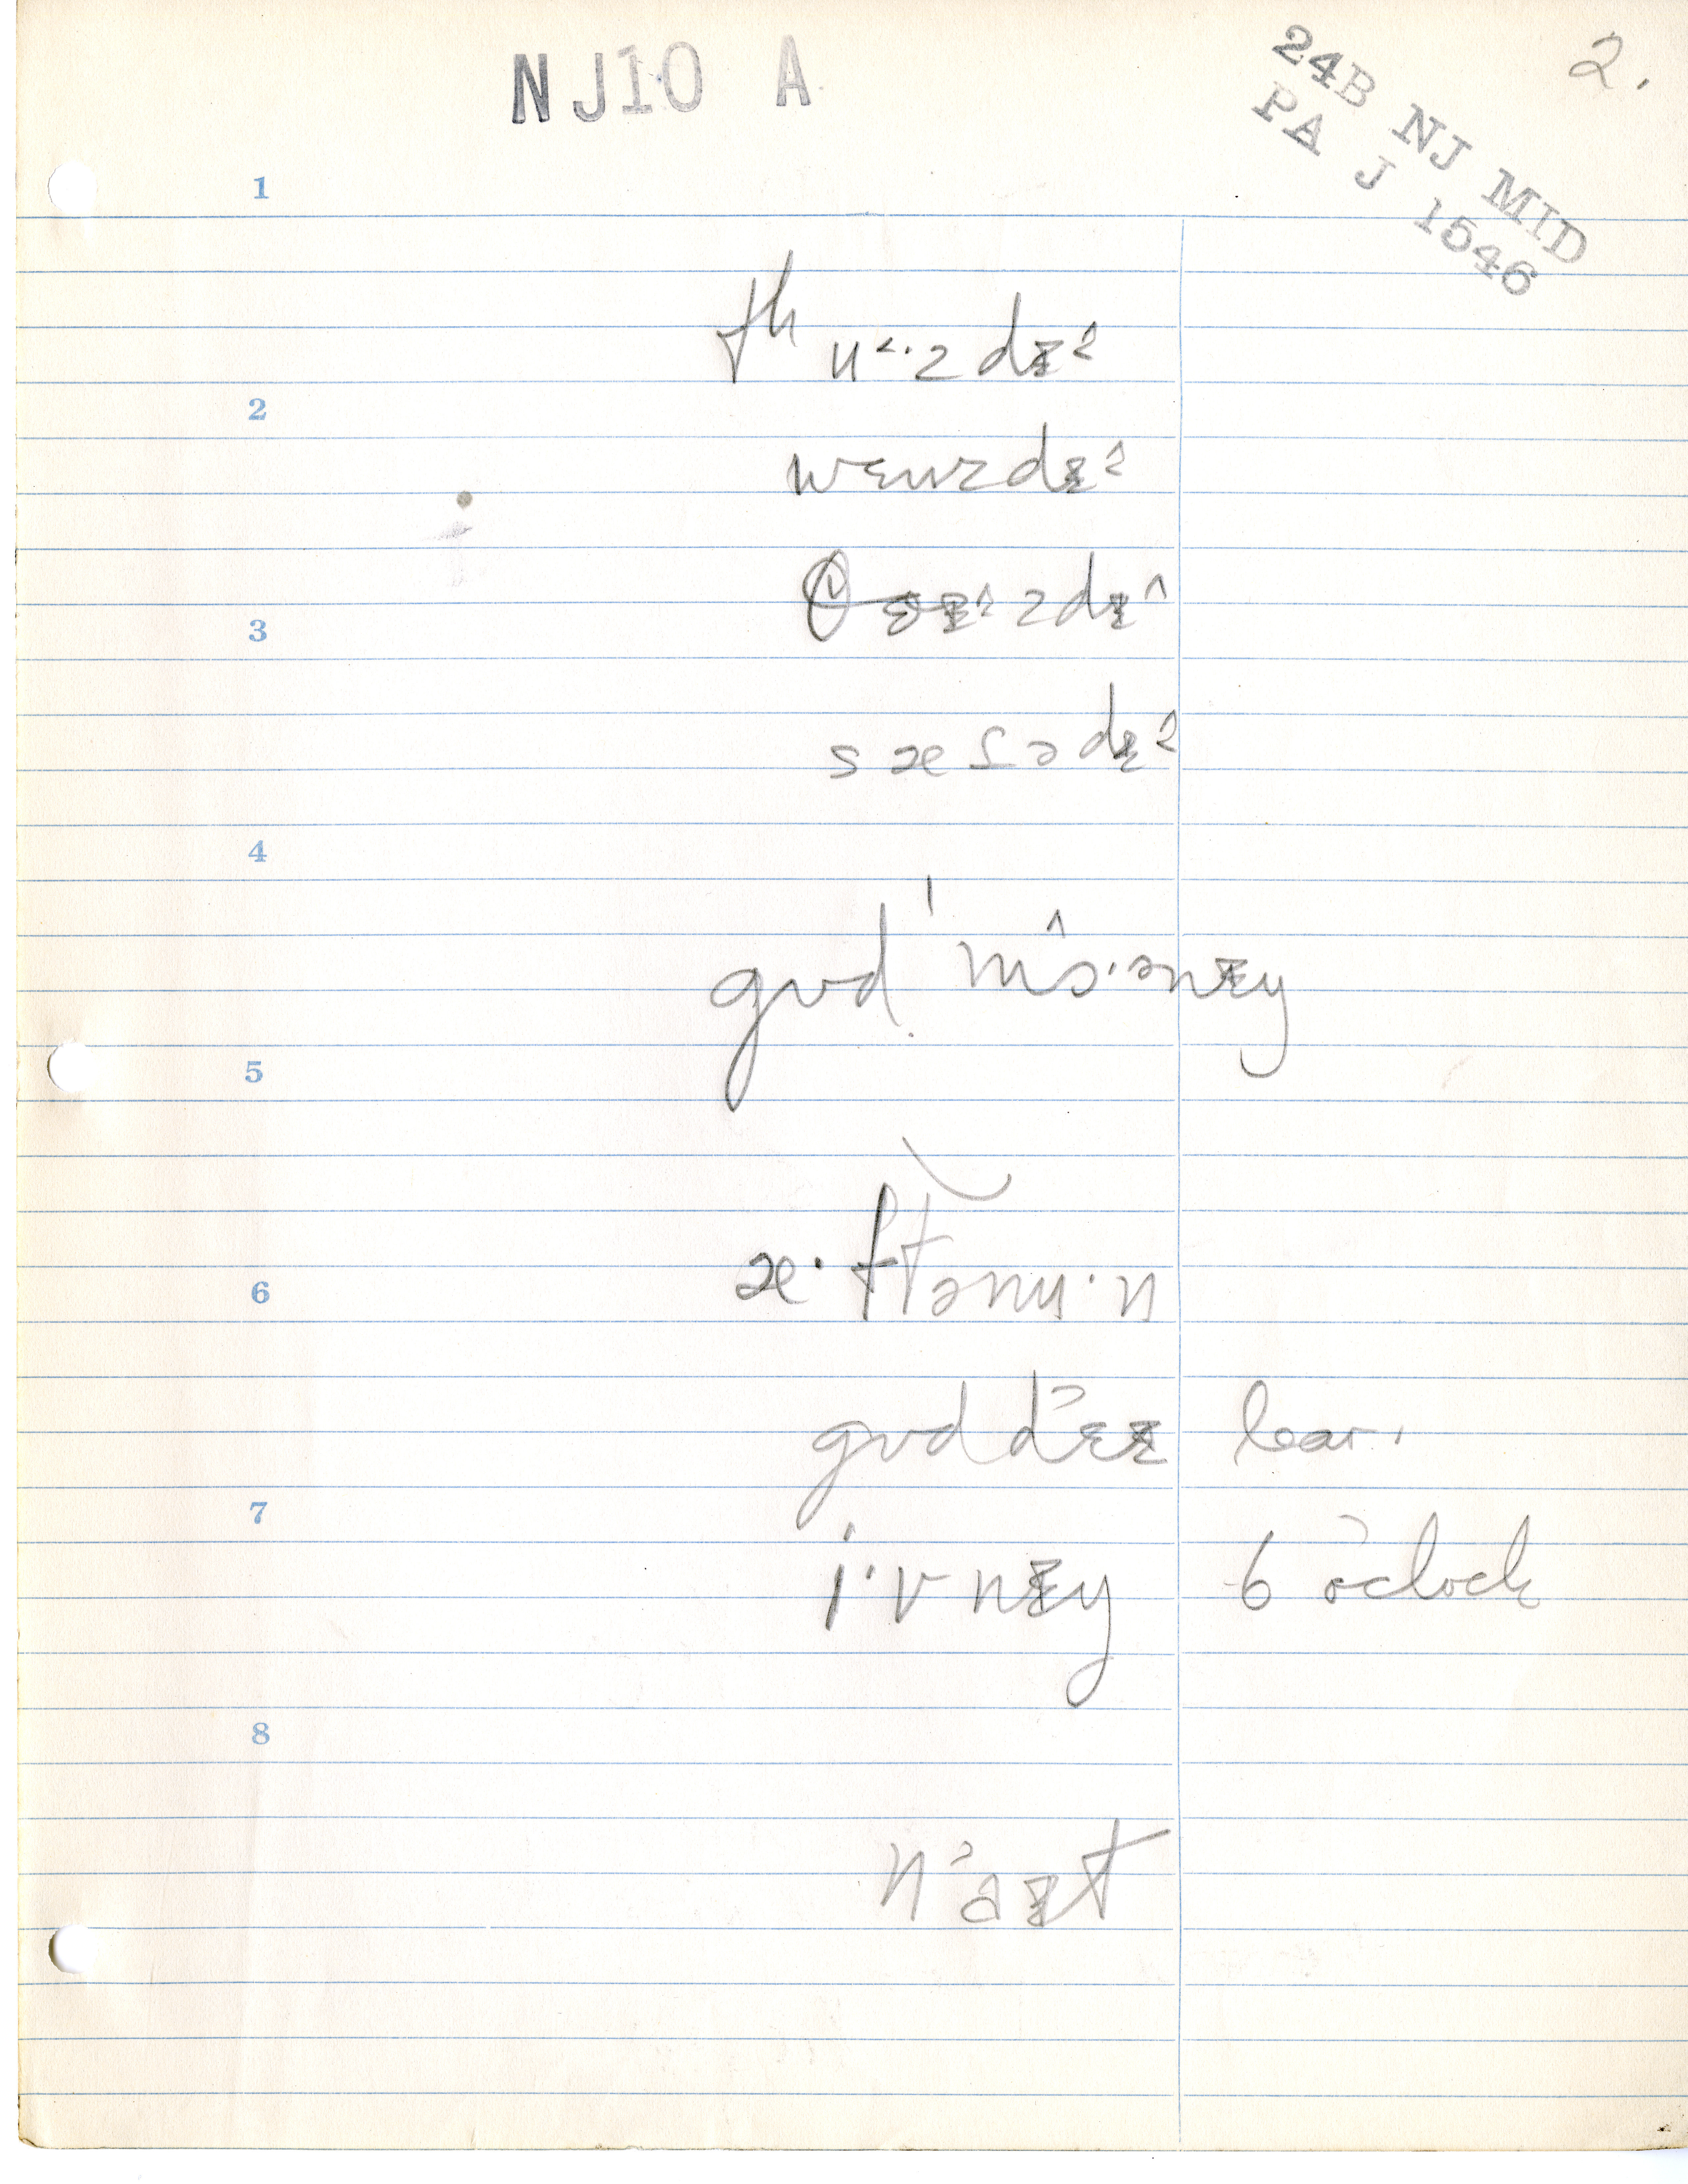 NJ10 A
24B NJ MID
PA J 1546
2.
1
tʰʉ˂·zdɪ˄
2
wɛnzdɪ˄
θɜɪ˄·zdɪ˄
3
sæɾədɪ˄
4
gʊd ˈmɔ˄·ənɪŋ
5
æ·ftənʉ·n
6
gʊd d˃ɛɪ
7
i·vnɪŋ 6 o'clock
8
n˃aɪt